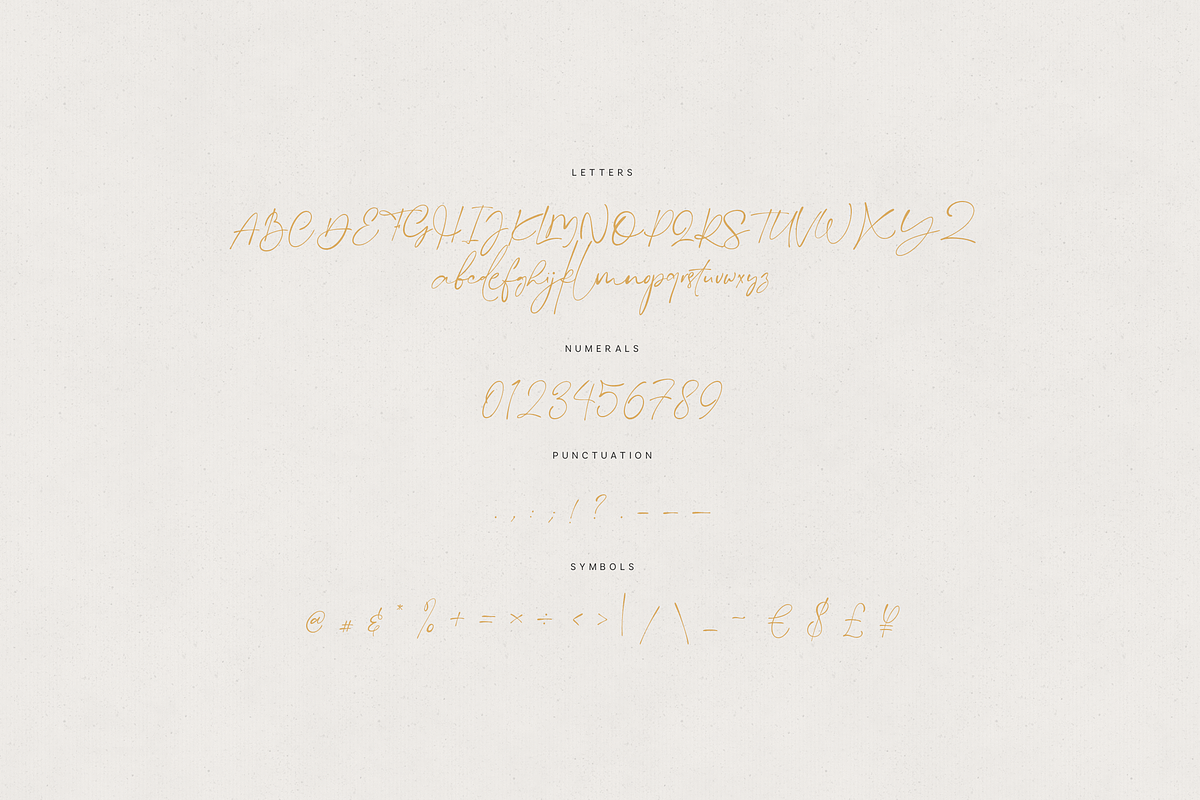 LETTERS
ABCDEFGHIJKLMNOPQRSTUVWXYZ
abcdefghijklmnopqrstuvwxyz
NUMERALS
0123456789
PUNCTUATION
. , : ; ! ? . – — —
SYMBOLS
@ # & * % + = × ÷ < > | / \ _ ~ € $ £ ¥